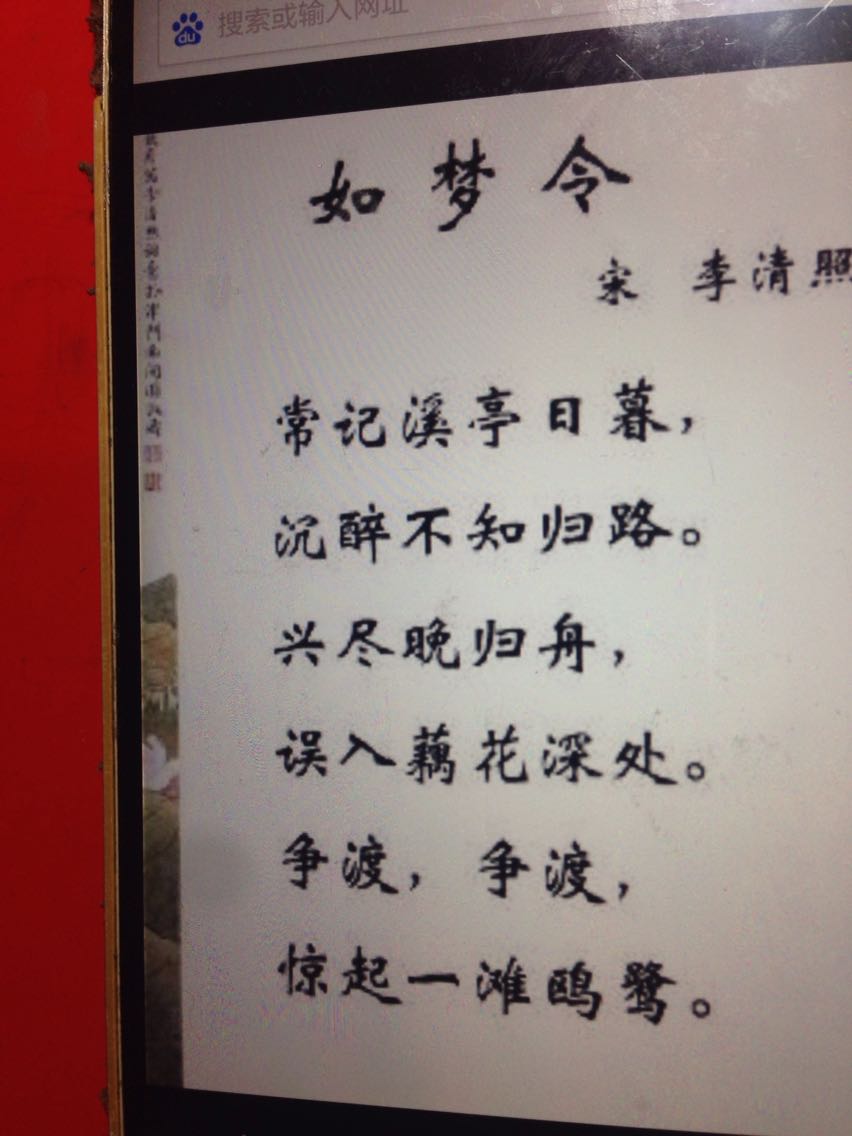 du 搜索或输入网址
如梦令
宋 李清照
常记溪亭日暮，
沉醉不知归路。
兴尽晚归舟，
误入藕花深处。
争渡，争渡，
惊起一滩鸥鹭。